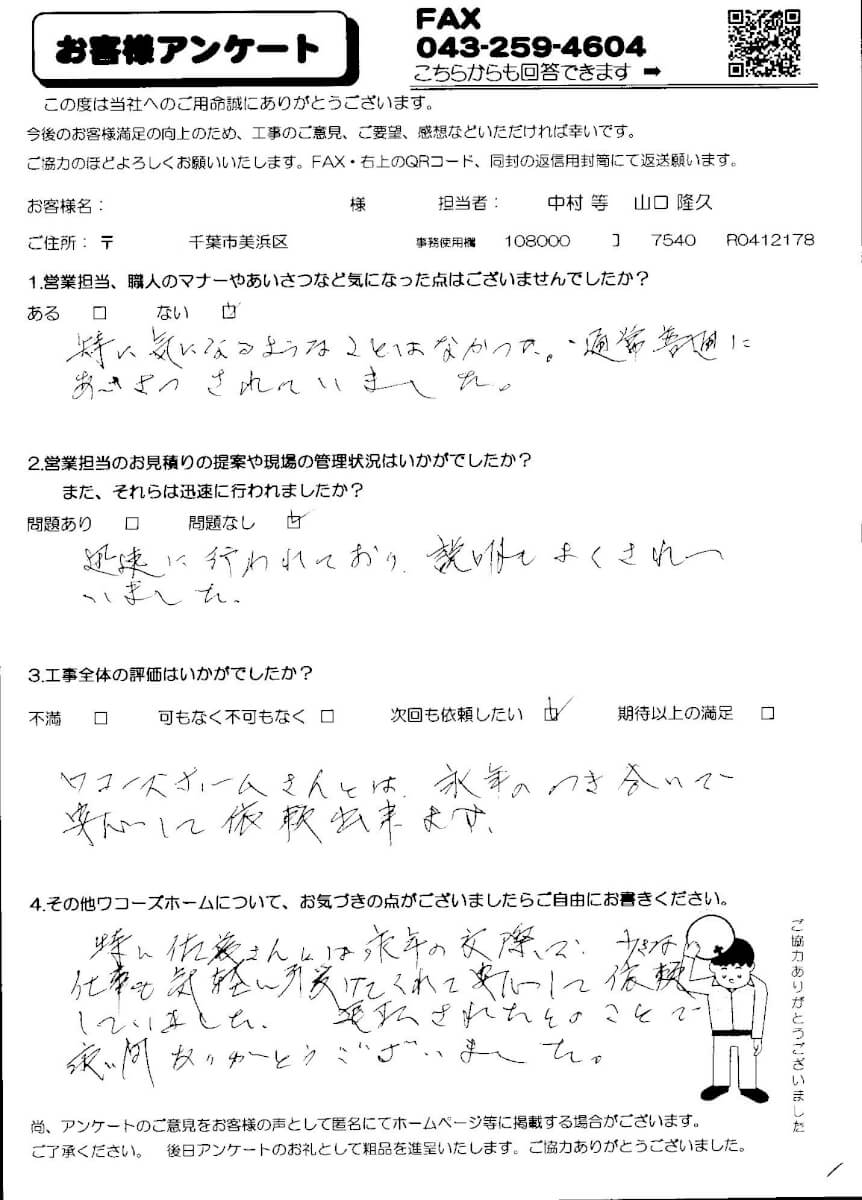 お客様アンケート
FAX
043-259-4604
こちらからも回答できます ➡
この度は当社へのご用命誠にありがとうございます。
今後のお客様満足の向上のため、工事のご意見、ご要望、感想などいただければ幸いです。
ご協力のほどよろしくお願いいたします。FAX・右上のQRコード、同封の返信用封筒にて返送願います。
お客様名： 様 担当者： 中村 等 山口 隆久
ご住所：〒 千葉市美浜区 事務使用欄 108000 J 7540 R0412178
1.営業担当、職人のマナーやあいさつなど気になった点はございませんでしたか？
ある □ ない ☑
特に気になるようなことはなかった。・通常普通に
あいさつされていました。
2.営業担当のお見積りの提案や現場の管理状況はいかがでしたか？
また、それらは迅速に行われましたか？
問題あり □ 問題なし ☑
迅速に行われており、説明もよくされて
いました。
3.工事全体の評価はいかがでしたか？
不満 □ 可もなく不可もなく □ 次回も依頼したい ☑ 期待以上の満足 □
ワコーズホームさんとは、永年のつき合いで
安心して依頼出来ます、
4.その他ワコーズホームについて、お気づきの点がございましたらご自由にお書きください。
特に佐藤さんには永年の交際で
仕事も気軽に引受けてくれて安心して依頼
していました。 されたそのことで
長い間ありがとうございました。
ご協力ありがとうございました
尚、アンケートのご意見をお客様の声として匿名にてホームページ等に掲載する場合がございます。
ご了承ください。 後日アンケートのお礼として粗品を進呈いたします。ご協力ありがとうございました。